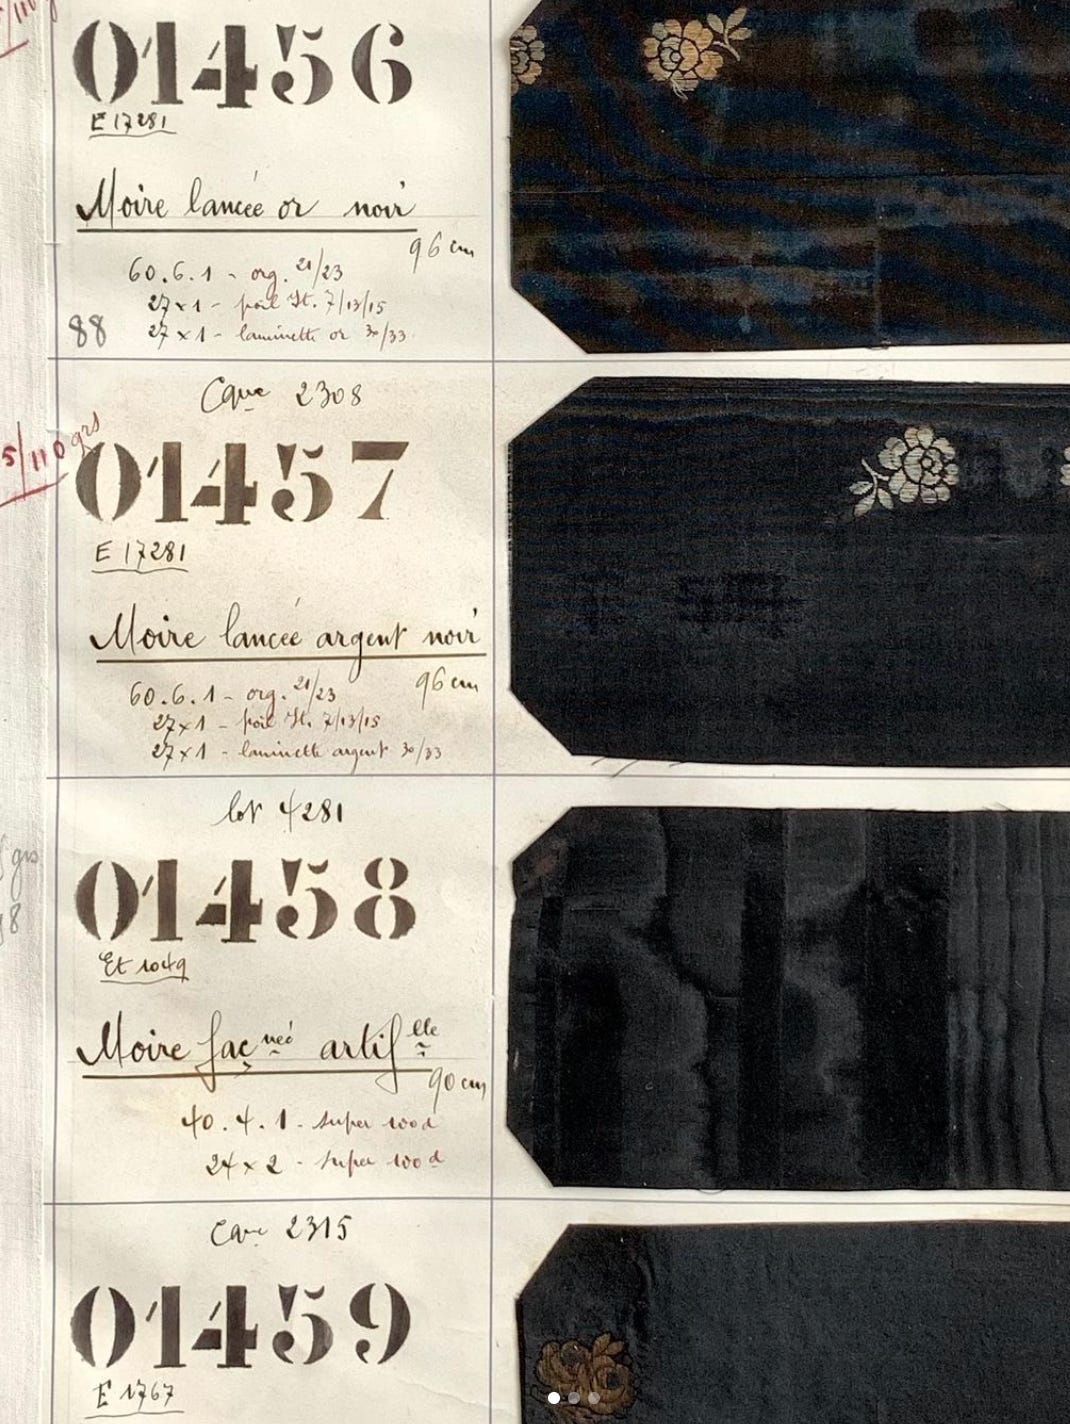 01456
E 17281
Moire lancée or noir
96 cm
60.6.1 - org. 21/23
27 x 1 - poil St. 7/13/15
88
27 x 1 - laminette or 30/33
Cque 2308
5/110 grs
01457
E 17281
Moire lancée argent noir
96 cm
60.6.1 - org. 21/23
27 x 1 - poil St. 7/13/15
27 x 1 - laminette argent 30/33
lot 4281
grs
01458
Et 1049
Moire façnée artiflle
90 cm
40.4.1 - super 100 d
24 x 2 - super 100 d
Cque 2315
01459
E 1767